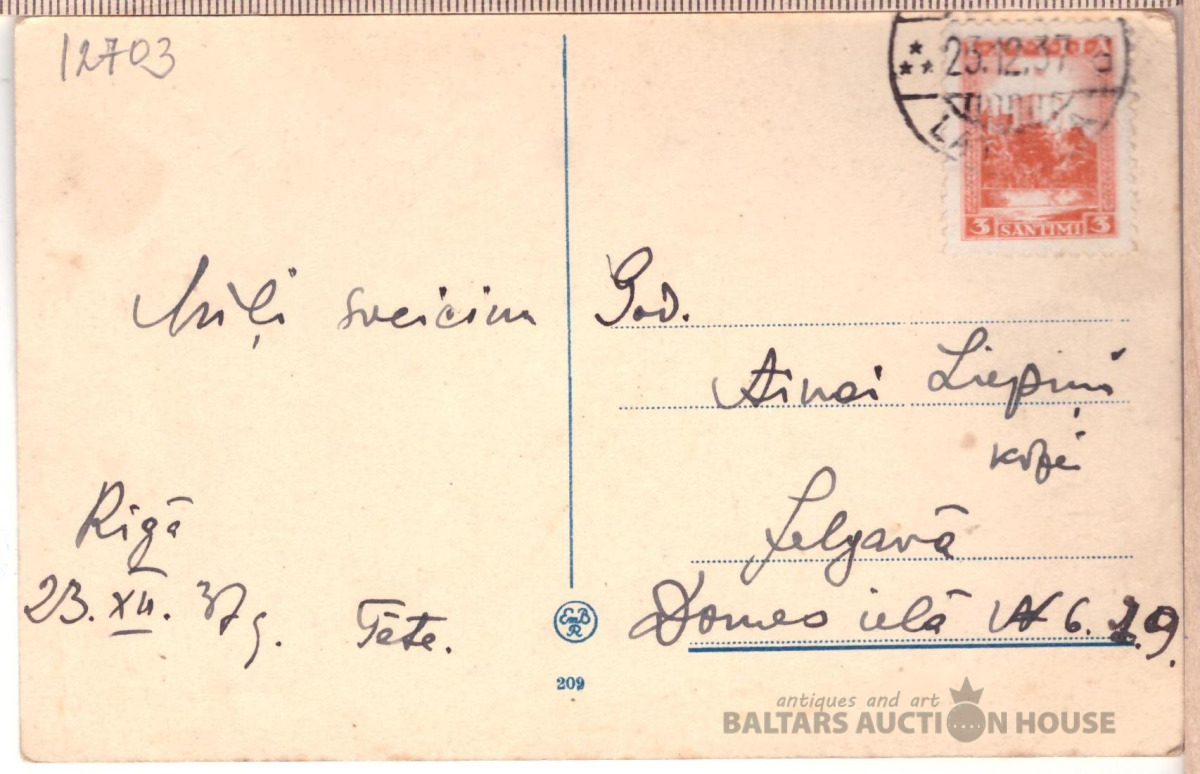 12703
23.12.37
LAT
3 SANTIMI 3
Mīļi sveicieni
God.
Ainai Liepiņ
kdzei
Rīgā
Jelgavā
23. XII. 37 g.
Tēte.
Domes ielā № 6. 9.
EmB
R
209
antiques and art
BALTARS AUCTION HOUSE